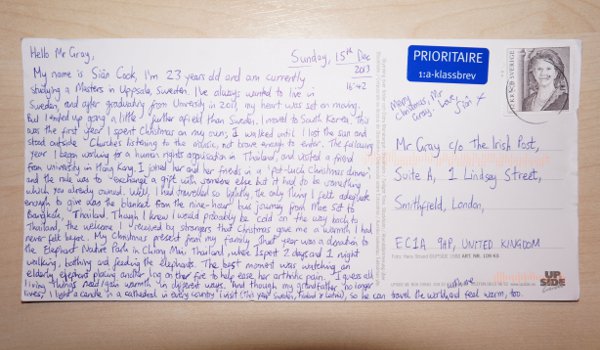 Hello Mr Gray,
Sunday, 15th Dec
2013
16:42
My name is Siân Cook, I'm 23 years old and am currently
studying a Masters in Uppsala, Sweden. I've always wanted to live in
Sweden and after graduating from University in 2011, my heart was set on moving.
But I ended up going a little further afield than Sweden, I moved to South Korea. This
was the first year I spent Christmas on my own; I walked until I lost the sun and
stood outside Churches listening to the music, not brave enough to enter. The following
year I began working for a human rights organisation in Thailand, and visited a friend
from university in Hong Kong. I joined her and her friends in a 'pot-luck Christmas dinner',
and the rule was to exchange a gift with someone else but it had to be something
which you already owned. Well, I had travelled so lightly the only thing I felt adequate
enough to give was the blanket from the nine-hour bus journey from Mae Sot to
Bangkok, Thailand. Though I knew I would probably be cold on the way back to
Thailand, the welcome I received by strangers that Christmas gave me a warmth I had
never felt before. My Christmas present from my family that year was a donation to
the Elephant Nature Park in Chiang Mai, Thailand, where I spent 2 days and 1 night
walking, bathing and feeding the elephants. The best moment was watching an
elderly elephant placing another log on her fire to help ease her arthritic pain. I guess all
living things need/gain warmth in different ways. And though my grandfather no longer
lives, I light a candle in a cathedral in every country I visit (this year Sweden, Finland & Latvia), so he can travel the world with me and feel warm, too.
PRIORITAIRE
1:a-klassbrev
SVERIGE
Merry
Christmas, Mr
Gray. Love,
Siân x
Mr Gray c/o The Irish Post,
Suite A, 1 Lindsey Street,
Smithfield, London,
EC1A 9HP, UNITED KINGDOM
UP
SIDE